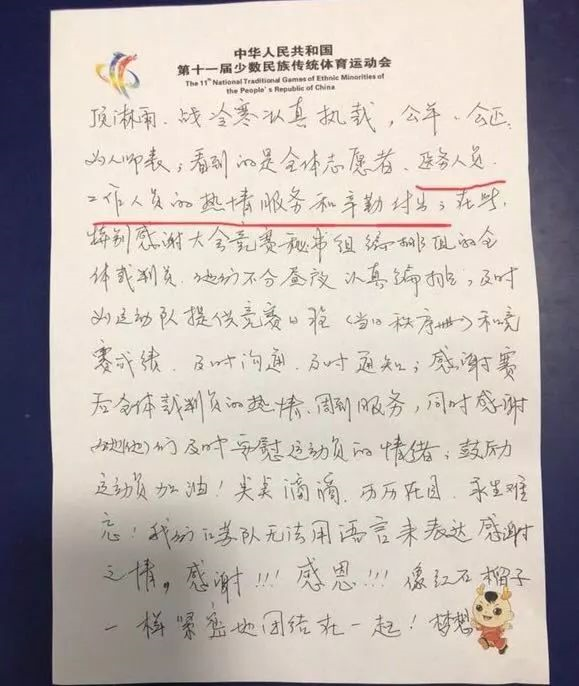 中华人民共和国
第十一届少数民族传统体育运动会
The 11th National Traditional Games of Ethnic Minorities of
the People's Republic of China
顶淋雨、战冷寒认真执裁，公平、公正、
为人师表；看到的是全体志愿者、医务人员、
工作人员的热情服务和辛勤付出；在此，
特别感谢大会竞赛秘书组编排组的全
体裁判员，他们不分昼夜认真编排，及时
为运动队提供竞赛日程（当日秩序册）和竞
赛成绩，及时沟通，及时通知；感谢赛
后全体裁判员的热情、周到服务，同时感谢
她(他)们及时安慰运动员的情绪；鼓励
运动员加油！点点滴滴，历历在目，永生难
忘！我们江苏队无法用语言来表达感谢
之情，感谢！！！感恩！！！像红石榴子
一样紧密地团结在一起！梦想